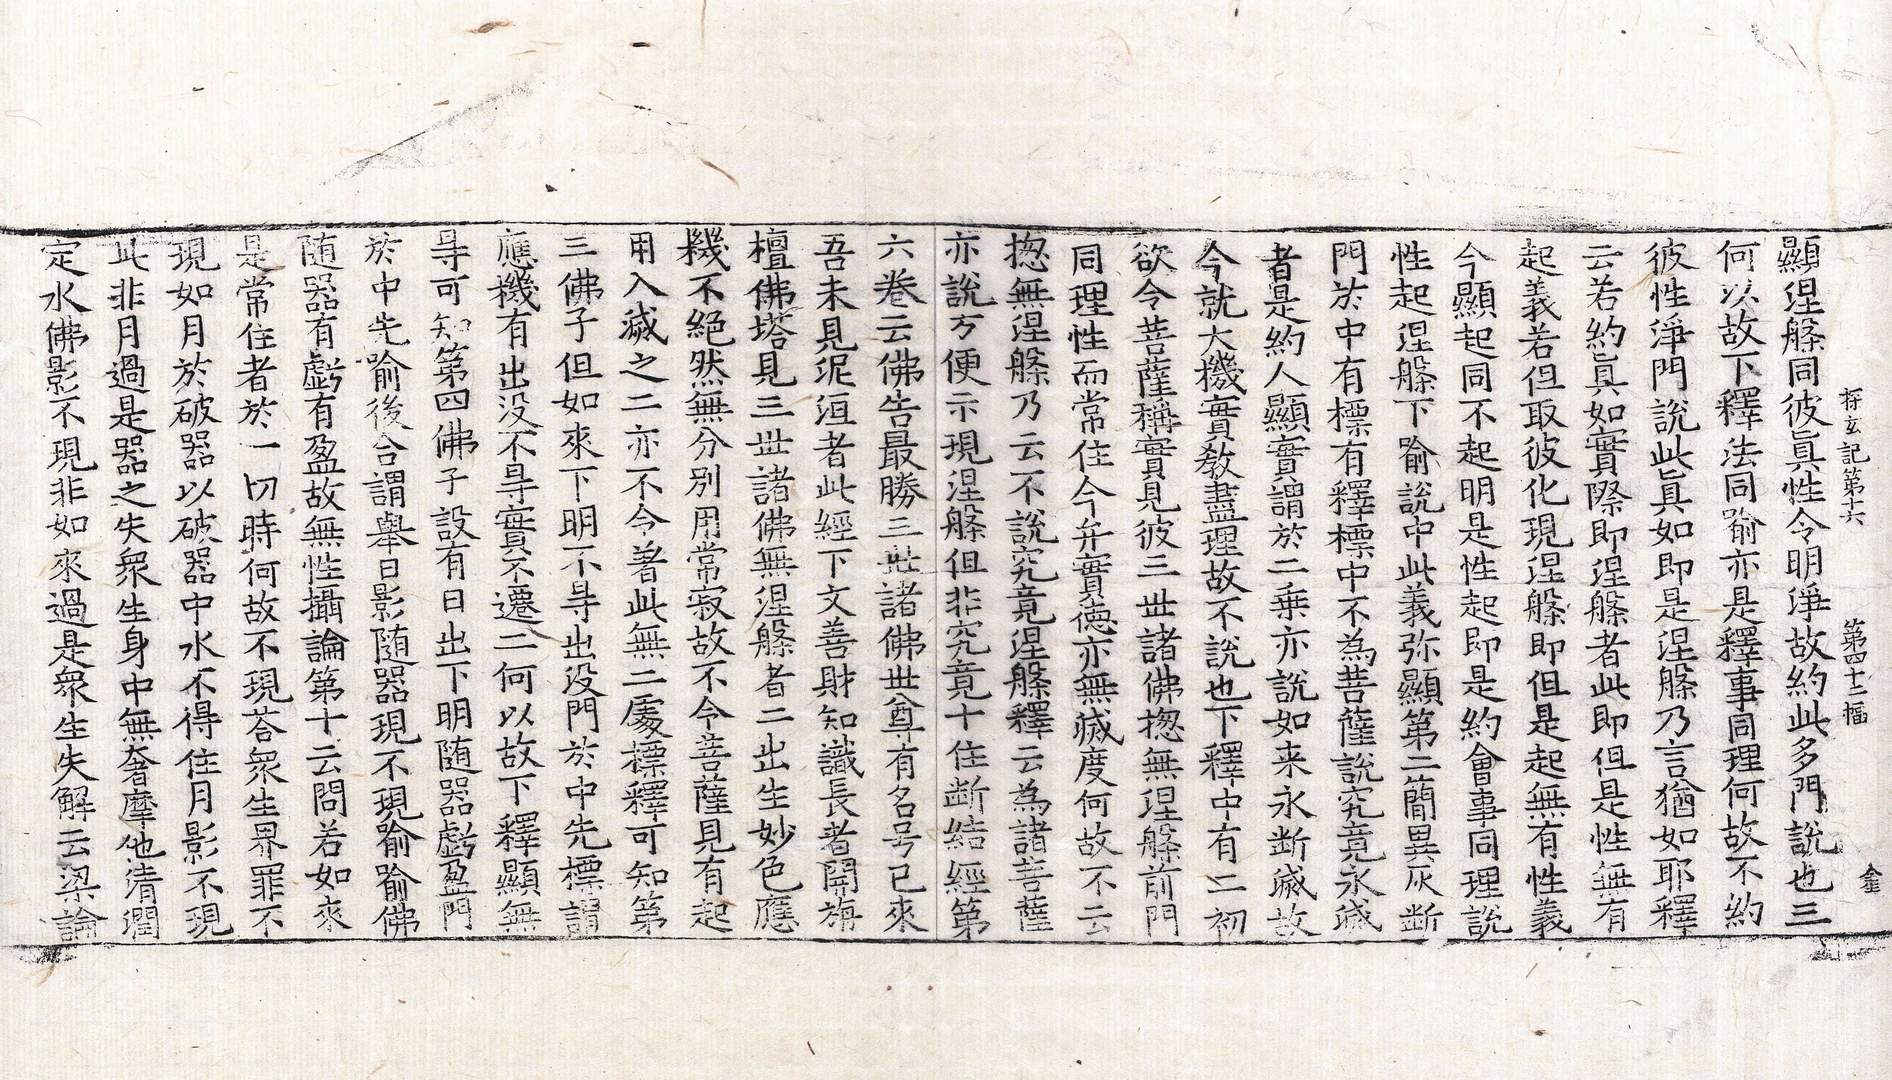 探玄記第十六　第四十二幅
顯涅槃同彼眞性令明淨故約此多門說也三
何以故下釋法同喻亦是釋事同理何故不約
彼性淨門說此眞如即是涅槃乃言猶如耶釋
云若約眞如實際即涅槃者此即但是性無有
起義若但取彼化現涅槃即但是起無有性義
今顯起同不起明是性起即是約會事同理說
性起涅槃下喻說中此義弥顯第二簡異灰断
門於中有標有釋標中不為菩薩說究竟永滅
者是約人顯實謂於二乗亦說如来永断滅故
今就大機實敎盡理故不說也下釋中有二初
欲令菩薩稱實見彼三世諸佛揔無涅槃前門
同理性而常住今弁實德亦無滅度何故不云
揔無涅槃乃云不說究竟涅槃釋云為諸菩薩
亦說方便示現涅槃但非究竟十住断結經第
六卷云佛告最勝三世諸佛世尊有名号已來
吾未見泥洹者此經下文善財知識長者開旃
檀佛塔見三世諸佛無涅槃者二出生妙色應
機不絕然無分別用常寂故不令菩薩見有起
用入滅之二亦不令著此無二處標釋可知第
三佛子但如來下明不㝵出没門於中先標謂
應機有出没不㝵實不遷二何以故下釋顯無
㝵可知第四佛子設有日出下明随器虧盈門
於中先喻後合謂舉日影随器現不現喻喻佛
随器有虧有盈故無性攝論第十云問若如來
是常住者於一切時何故不現荅衆生界罪不
現如月於破器以破器中水不得住月影不現
此非月過是器之失衆生身中無奢摩他清潤
定水佛影不現非如來過是衆生失解云梁論